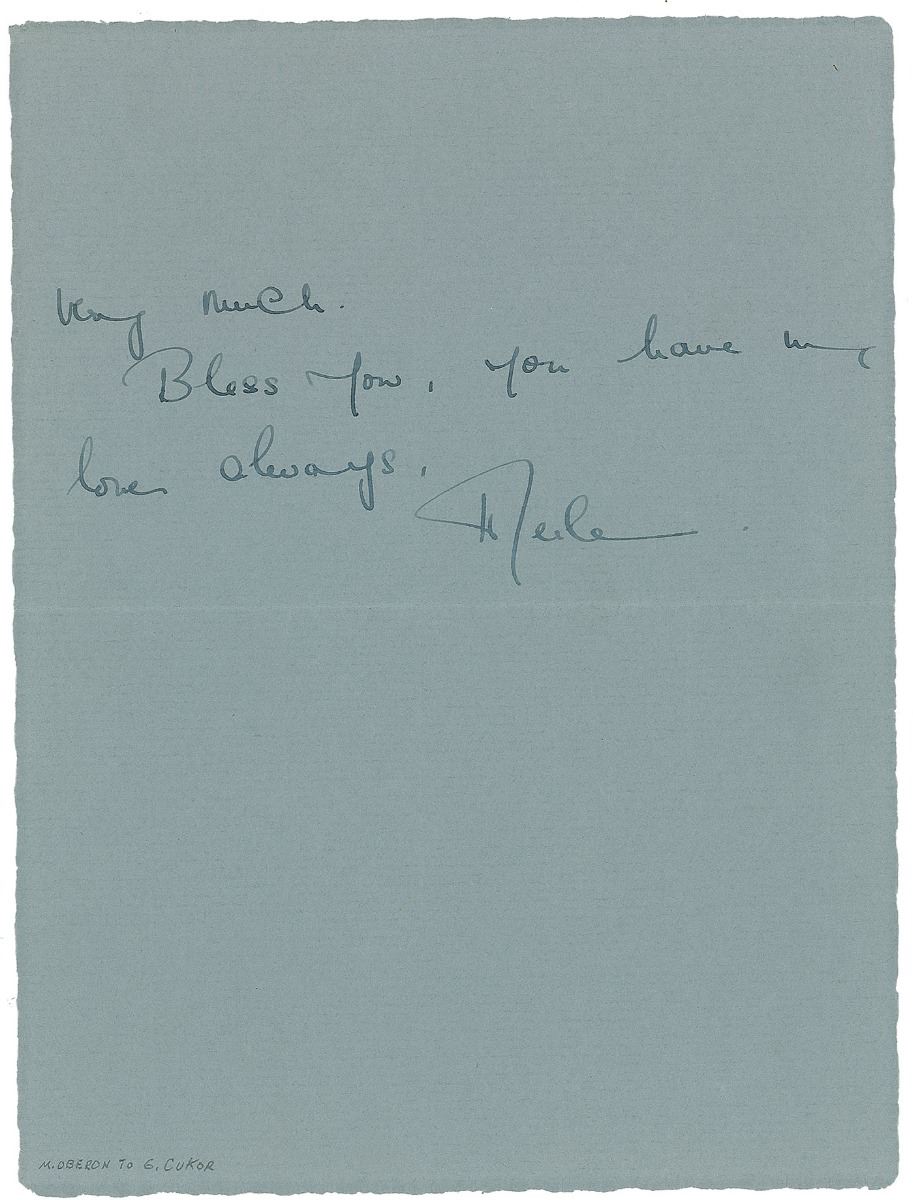 Very much.
Bless you, you have my
love always.
Merle.
M. OBERON TO G. CUKOR